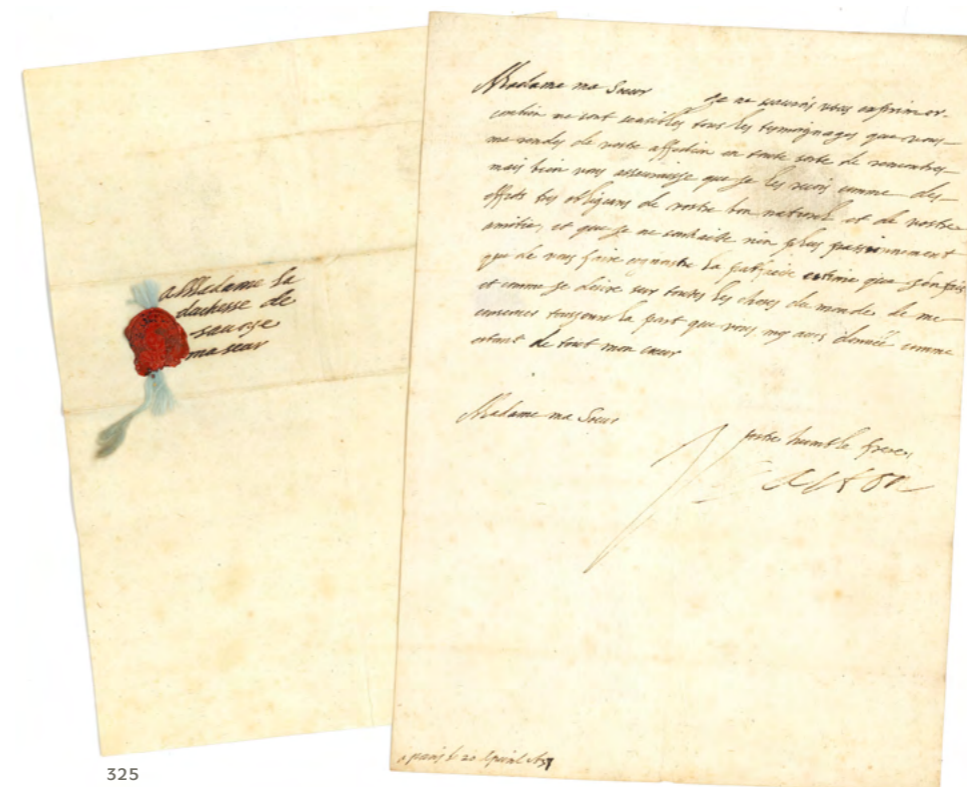 a Madame la
duchesse de
savoye
ma seur
Madame ma Soeur Je ne sçaurois vous exprimer
combien me sont sensibles tous les temoignages que vous
me rendes de vostre affection en toute sorte de rencontres
mais bien vous que je les reçois comme des
effets tres obligeans de vostre bon naturel et de vostre
amitié, et que je ne souhaite rien plus passionnement
que de vous faire cognoistre la estime que j'en fais
et comme je desire sur toutes les choses du monde de me
conserver tousjours la part que vous my aves donnée comme
estant de tout mon cœur
Madame ma Soeur
vostre humble frere,
Gaston
a paris le 20
325